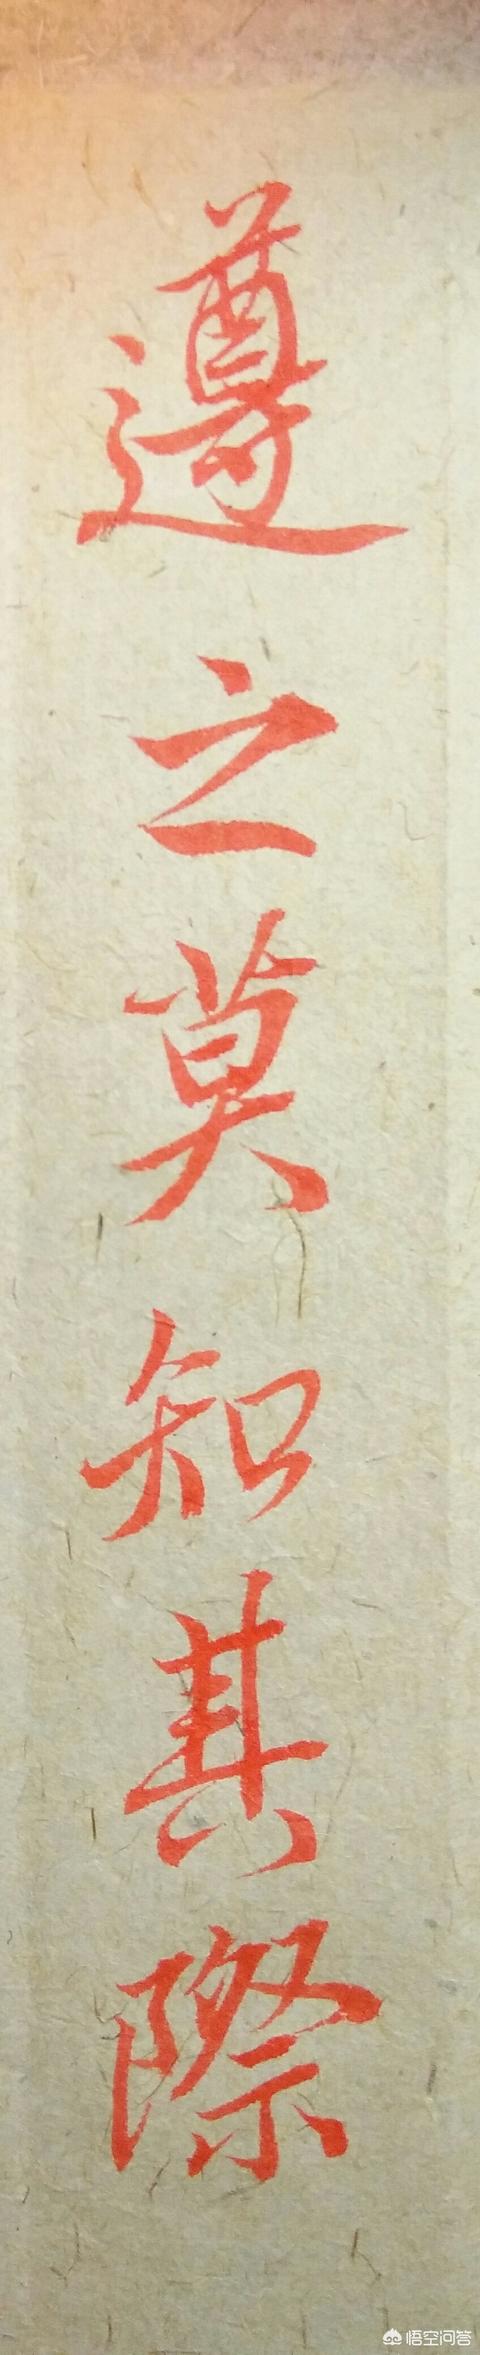 遵之莫知其際
悟空问答